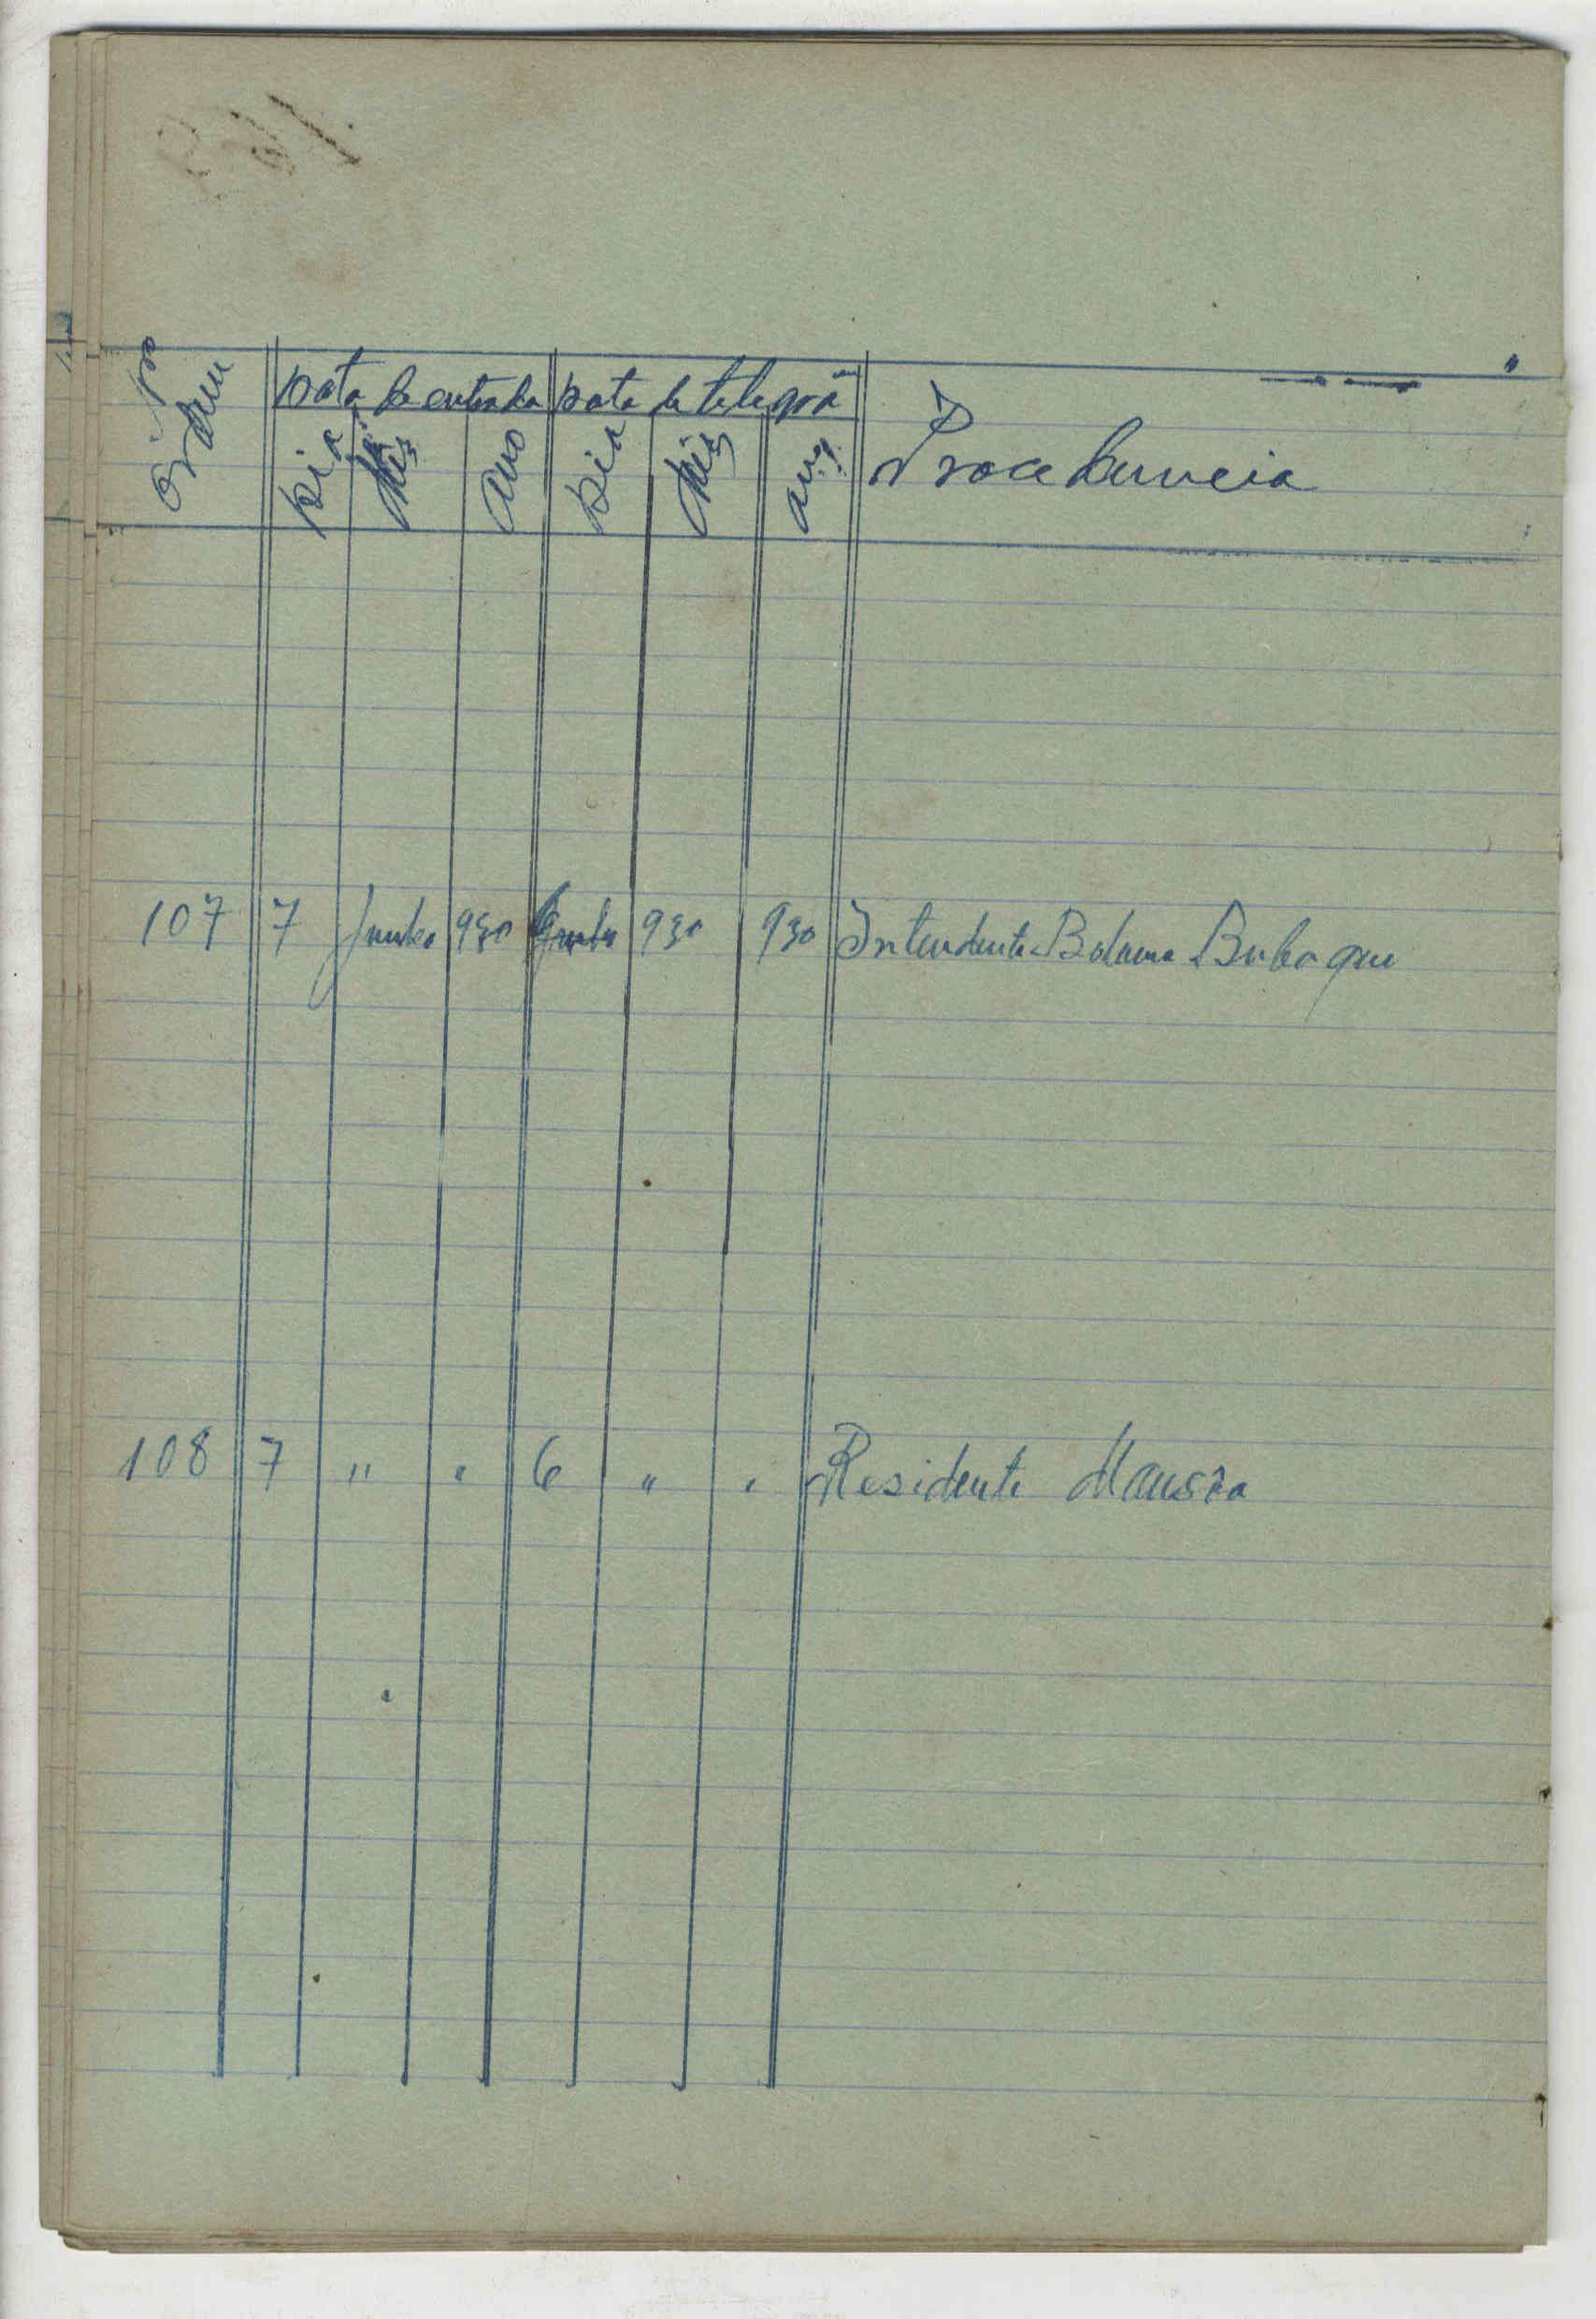 Nº de ordem
Data de entrada Data de telegrã Procedencia
Dia Mês Ano Dia Mês Ano
107 7 Junho 930 930 930 Intendente Bolama Bubaque
108 7 " " 6 " " Residente Mansôa